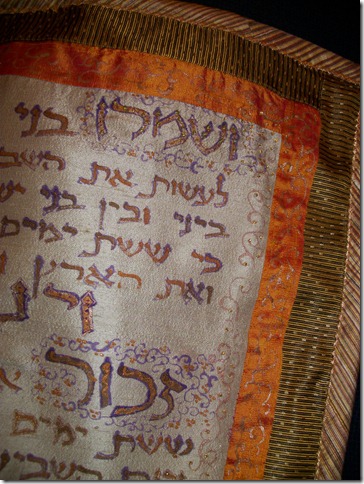 ושמרו בני
לעשות את השב
ביני ובין בני יש
כי ששת ימים
ואת הארץ
זכור
ששת ימים
השביע